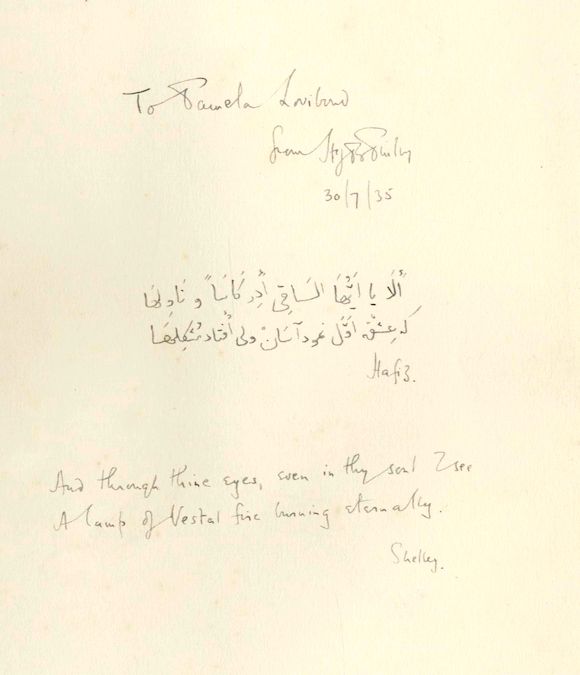 To Pamela Lovibond
from H. St. J. B. Philby
30/7/35
أَلَا يا اَيُّهَا السَاقِي أَدِر كَاسًا و نَاوِلهَا
كه عِشق اَوَّل نمود آسَان ولى اُفتاد مُشكِلهَا
Hafiz.
And through thine eyes, even in thy soul I see
A lamp of Vestal fire burning eternally.
Shelley.